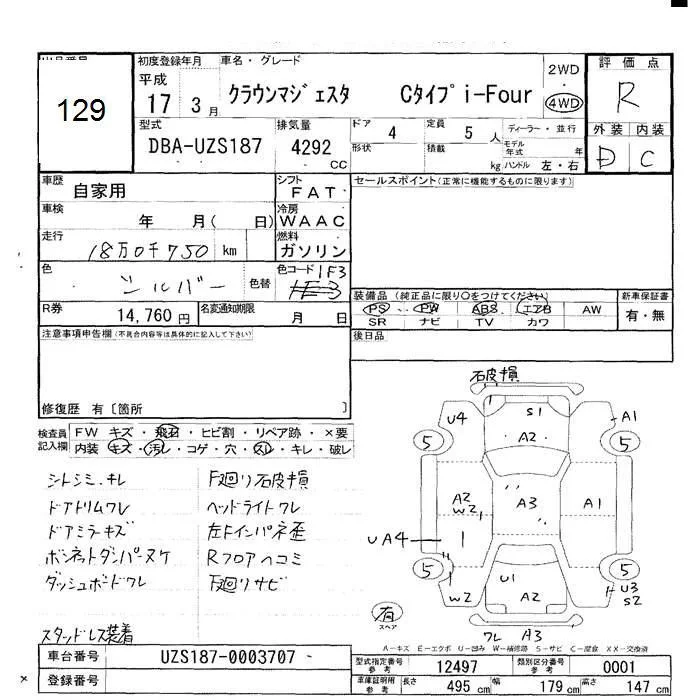 初度登録年月
車名・グレード
129
平成
17 3月
クラウンマジェスタ Cタイプ i-Four
2WD
4WD
評価点
R
外装 内装
D C
型式
DBA-UZS187
排気量
4292 CC
ドア 4
定員 5人
形状
積載 kg
ディーラー・並行
モデル年式 年
ハンドル 左・右
車歴
自家用
シフト
FAT
セールスポイント(正常に機能するものに限ります)
車検
年 月( 日)
冷房
WAAC
走行
18万0千750 km
燃料
ガソリン
色
シルバー
色替
色コード 1F3
R券
14,760円
名変通知期限
月 日
装備品(純正品に限り○をつけてください)
PS ・ PW ABS エアB AW
SR ナビ TV カワ
新車保証書
有・無
注意事項申告欄(不具合内容等は具体的に記入して下さい)
後日品
修復歴 有〔箇所 〕
検査員記入欄
FW キズ・飛石・ヒビ割・リペア跡・×要
内装 キズ・汚レ・コゲ・穴・スレ・キレ・破レ
シトシミ、キレ
ドアトリムワレ
ドアミラーキズ
ボンネットダンパーヌケ
ダッシュボードワレ
スタッドレス装着
F廻り石皮損
ヘッドライトワレ
左Fインパネ歪
Rフロアヘコミ
下廻りサビ
石皮損
U4
S1
A1
5
A2
5
A2
W2
A3
A1
UA4
5
U1
5
W2
A2
U3
S2
有
スペア
ワレ A3
A−キズ E−エクボ U−凹み W−補修跡 S−サビ C−腐食 XX−交換済
車台番号
UZS187-0003707
登録番号
型式指定番号
参考
12497
類別区分番号
参考
0001
車庫証明用
参考
長さ 495 cm
幅 179 cm
高さ 147 cm